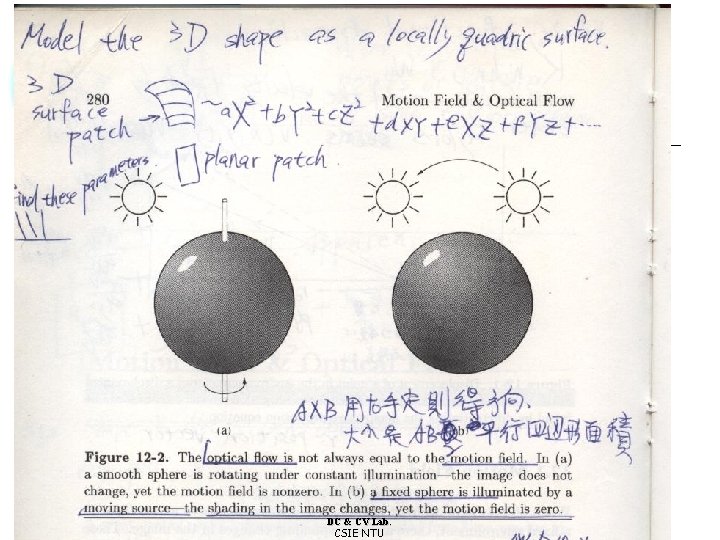 Model the 3D shape as a locally quadric surface.
3D
surface
patch → ~aX²+bY²+cZ²
280 Motion Field & Optical Flow
+dXY+eXZ+fYZ+···
planar patch.
find these parameters.
AXB 用右手定則得方向.
(a)
大小是AB 平行四边形面積
Figure 12-2. The optical flow is not always equal to the motion field. In (a)
a smooth sphere is rotating under constant illumination—the image does not
change, yet the motion field is nonzero. In (b) a fixed sphere is illuminated by a
moving source—the shading in the image changes, yet the motion field is zero.
DC & CV Lab.
CSIE NTU